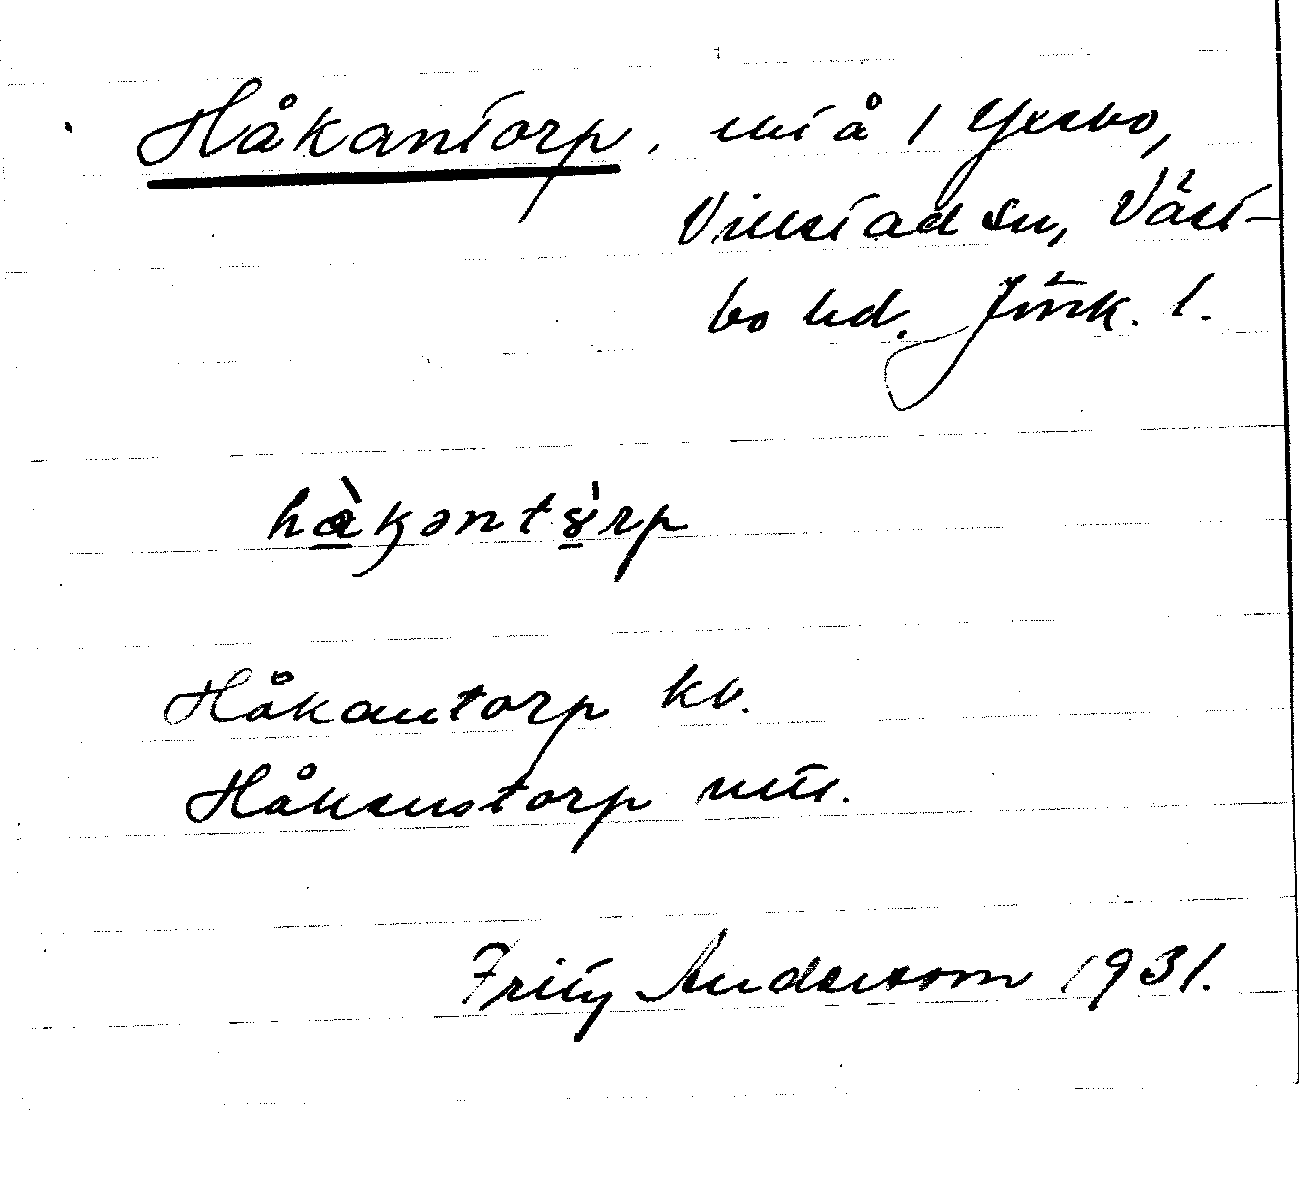 Håkantorp, utj å 1 Yxabo,
Villstad sn, Väst-
bo hd. Jönk. l.
håkəntɤrp
Håkantorp kb.
Håkanstorp mtl.
Fritz Anderson 1931.